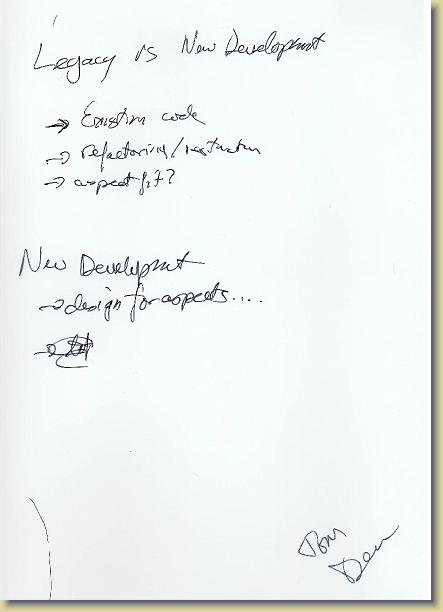 Legacy vs New Development
→ Existing code
→ refactoring/restructure
→ aspect fit?
New Development
→ design for aspects....
→
Tom